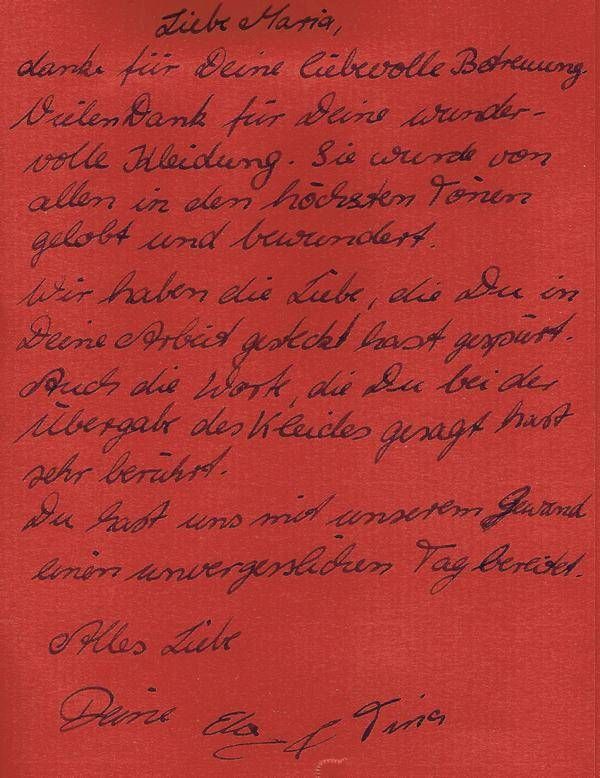 Liebe Maria,
danke für Deine liebevolle Betreuung.
Vielen Dank für Deine wunder-
volle Kleidung. Sie wurde von
allen in den höchsten Tönen
gelobt und bewundert.
Wir haben die Liebe, die Du in
Deine Arbeit gesteckt hast gespürt.
Auch die Worte, die Du bei der
Übergabe des Kleides gesagt hast
sehr berührt.
Du hast uns mit unserem Gewand
einen unvergesslichen Tag bereitet.
Alles Liebe
Deine Ela & Tina